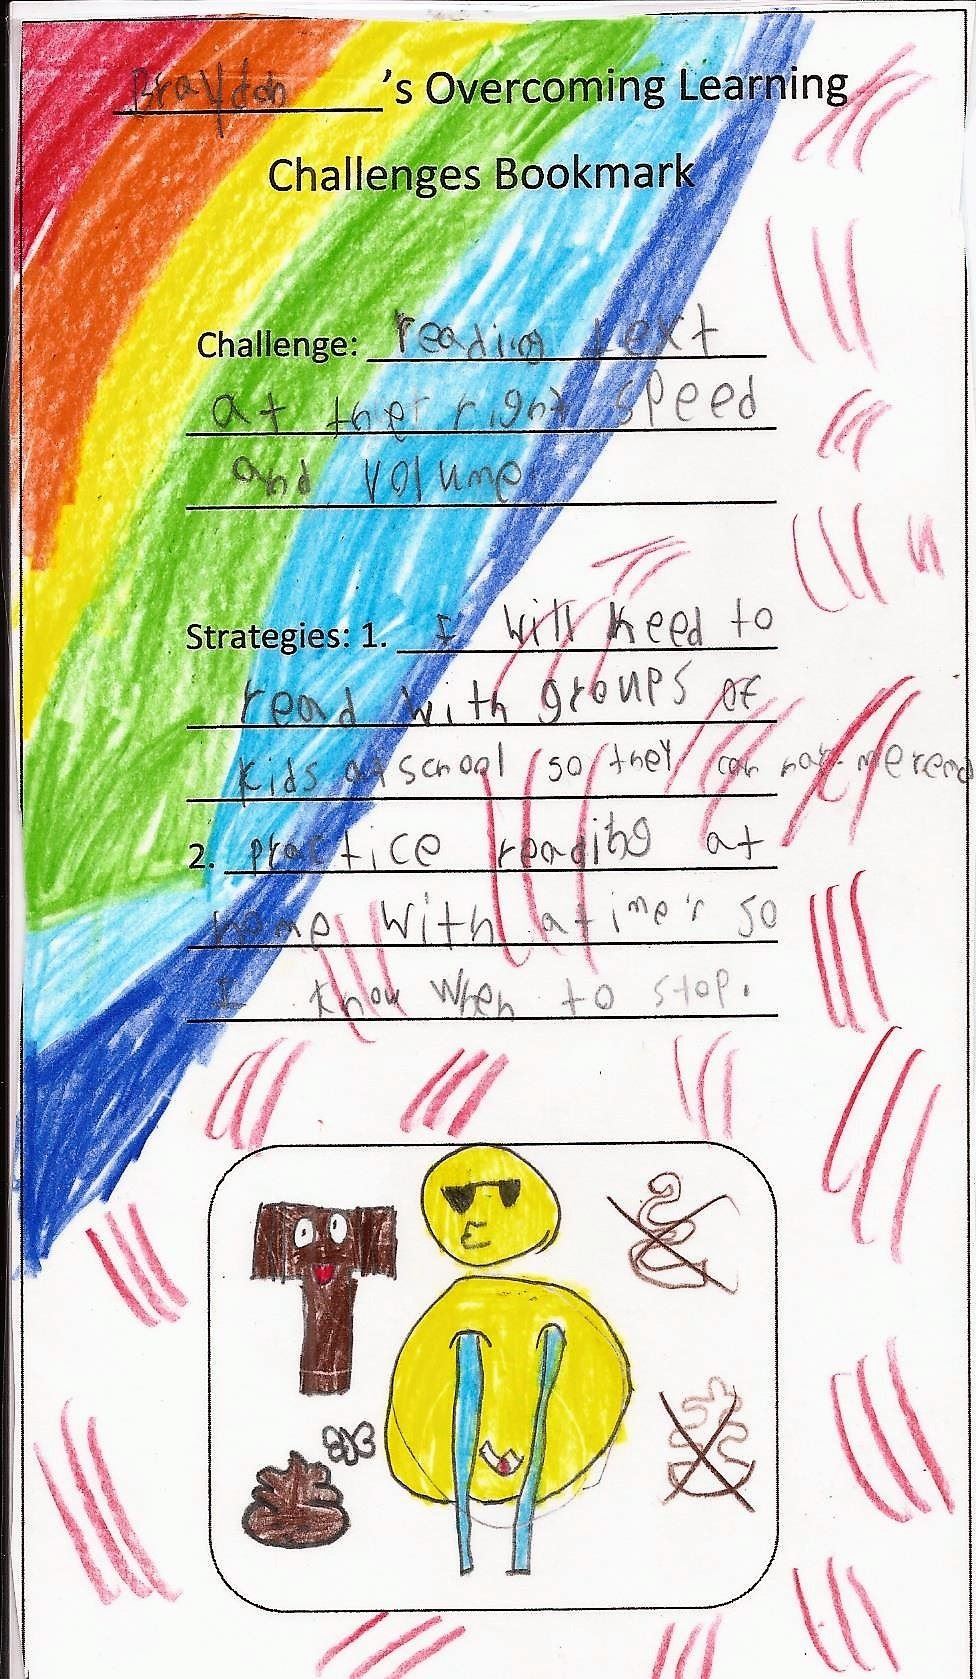 Brayden's Overcoming Learning
Challenges Bookmark
Challenge: reading text
at the right speed
and volume
Strategies: 1. I will need to
read with groups of
kids at school so they can hear me read
2. practice reading at
home with a timer so
I know when to stop.